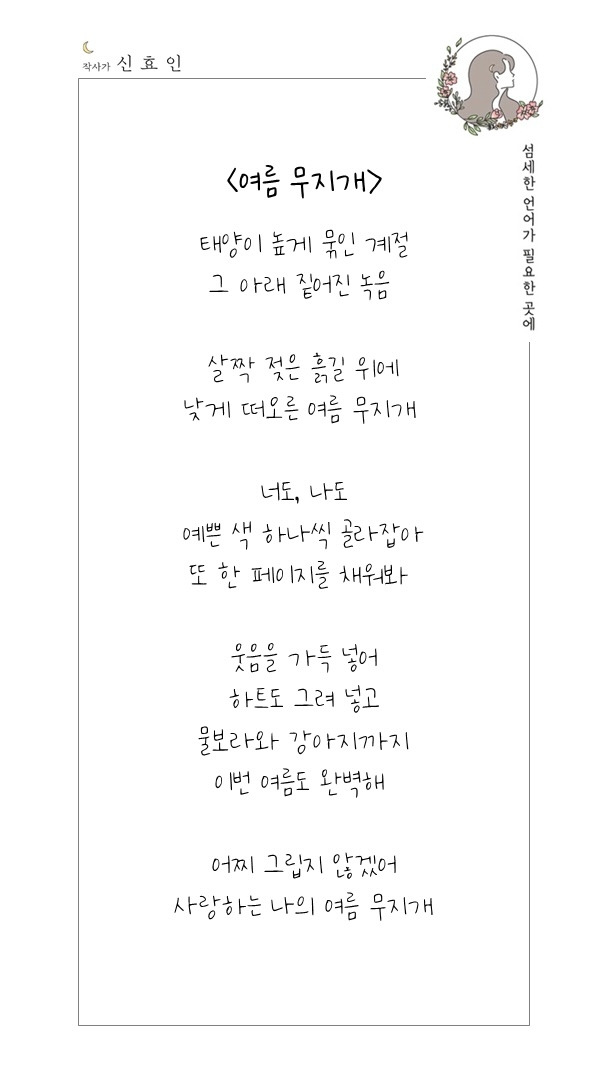 작사가 신효인
섬세한 언어가 필요한 곳에
<여름 무지개>
태양이 높게 묶인 계절
그 아래 짙어진 녹음
살짝 젖은 흙길 위에
낮게 떠오른 여름 무지개
너도, 나도
예쁜 색 하나씩 골라잡아
또 한 페이지를 채워봐
웃음을 가득 넣어
하트도 그려 넣고
물보라와 강아지까지
이번 여름도 완벽해
어찌 그립지 않겠어
사랑하는 나의 여름 무지개